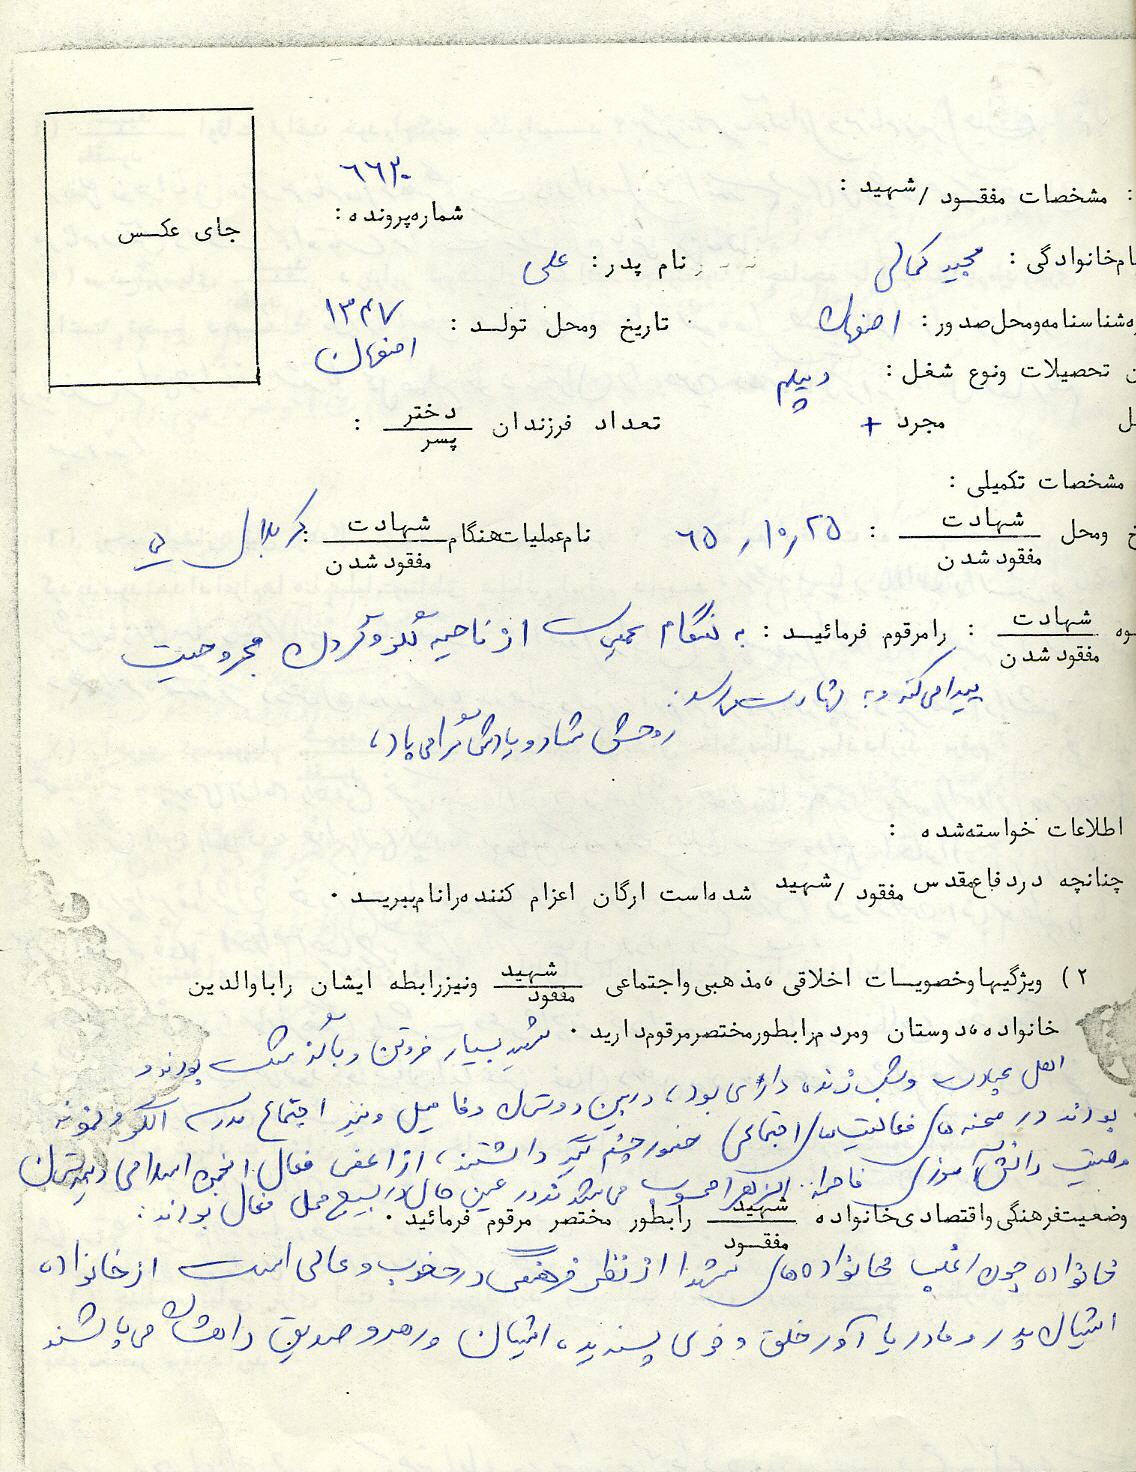 ۶۶۳۰
: مشخصات مفقود / شهید :
شماره پرونده :
جای عکس
ام خانوادگی : مجید کمالی
نام پدر : علی
ه شناسنامه ومحل صدور : اصفهان
تاریخ ومحل تولد : ۱۳۴۷
اصفهان
ن تحصیلات ونوع شغل : دیپلم
ل مجرد +
تعداد فرزندان دختر / پسر :
مشخصات تکمیلی :
خ ومحل شهادت / مفقود شدن : ۶۵,۱۰,۲۵
نام عملیات هنگام شهادت / مفقود شدن : کربلای ۵
وه شهادت / مفقود شدن : را مرقوم فرمائید : به هنگام عملیات از ناحیه گلو و گردن مجروحیت
پیدا می‌کند و به شهادت می‌رسد.
روحش شاد و یادش گرامی باد ،
اطلاعات خواسته شده :
چنانچه در دفاع مقدس مفقود / شهید شده است ارگان اعزام کننده را نام ببرید .
۲) ویژگیها وخصوصیات اخلاقی ، مذهبی واجتماعی شهید / مفقود ونیز رابطه ایشان را با والدین
خانواده ، دوستان ومردم را بطور مختصر مرقوم دارید . شهید بسیار فروتن و با گذشت بودند و
اهل عبادت و شب زنده داری بود ، در بین دوستان و فامیل و نیز اجتماع مدرسه الگو و نمونه
بودند در صحنه های فعالیت های اجتماعی حضور چشم گیر داشتند ، از اعضای فعال انجمن اسلامی دبیرستان
دانش آموزی الزهرا محسوب می‌شدند در عین حال در بسیج محل فعال بودند .
وضعیت فرهنگی واقتصادی خانواده شهید / مفقود را بطور مختصر مرقوم فرمائید .
خانواده چون اغلب خانواده های شهدا از نظر فرهنگی در حد خوب و عالی است از خانواده
ایشان پدر و مادر با خلق و خوی پسندیده ، ایشان می باشند